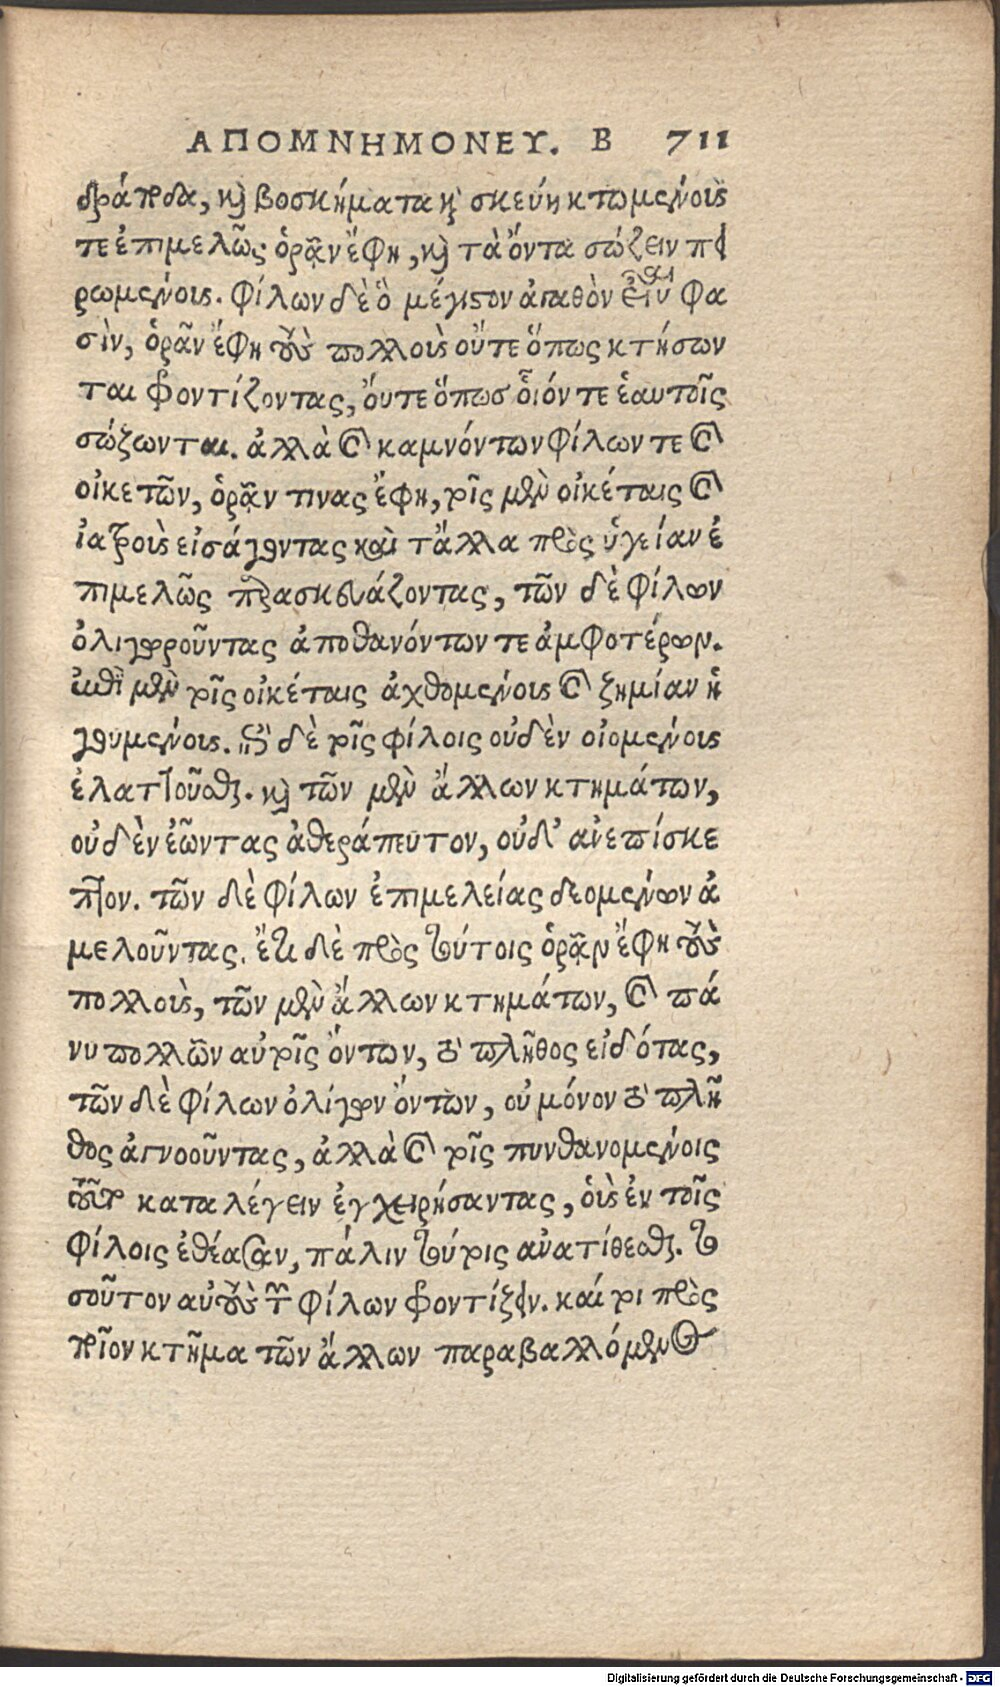 ΑΠΟΜΝΗΜΟΝΕΥ. Β 711
δράποδα, καὶ βοσκήματα καὶ σκεύη κτωμένους
τε ἐπιμελῶς ὁρᾷν ἔφη, καὶ τὰ ὄντα σώζειν πει
ρωμένους. Φίλον δὲ ὃ μέγιστον ἀγαθὸν εἶναι φα
σὶν, ὁρᾶν ἔφη τοὺς πολλοὺς οὔτε ὅπως κτήσων
ται φροντίζοντας, ὄυτε ὅπως ὁῖόν τε ἑαυτοῖς
σώζωνται. ἀλλὰ καὶ καμνόντων φίλων τε καὶ
οἰκετῶν, ὁρᾷν τινας ἔφη, τοῖς μὲν οἰκέταις καὶ
ἰατροὺς εἰσάγοντας καὶ τἄλλα πρὸς ὑγείαν ἐ
πιμελῶς παρασκευάζοντας, τῶν δὲ φίλων
ὀλιγωροῦντας ἀποθανόντων τε ἀμφοτέρων.
ἐπὶ μὲν τοῖς οἰκέταις ἀχθομένους καὶ ζημίαν ἡ
γουμένους. ἐπὶ δὲ τοῖς φίλοις οὐδὲν οἰομένους
ἐλαττοῦσθαι. καὶ τῶν μὲν ἄλλων κτημάτων,
οὐδὲν ἐῶντας ἀθεράπευτον, οὐδ' ἀνεπίσκε
πτον. τῶν δὲ φίλων ἐπιμελείας δεομένων ἀ
μελοῦντας. ἔτι δὲ πρὸς τούτοις ὁρᾷν ἔφη τοὺς
πολλοὺς, τῶν μὲν ἄλλων κτημάτων, καὶ πά
νυ πολλῶν αὐτοῖς ὄντων, τὸ πλῆθος εἰδότας,
τῶν δὲ φίλων ὀλίγων ὄντων, οὐ μόνον τὸ πλῆ
θος ἀγνοοῦντας, ἀλλὰ καὶ τοῖς πυνθανομένοις
τοῦτο καταλέγειν ἐγχειρήσαντας, ὁὺς ἐν τοῖς
φίλοις ἐθέασαν, πάλιν τούτοις ἀνατίθεσθαι. το
σοῦτον αὐτοὺς τῶν φίλων φροντίζειν. καίτοι πρὸς
ποῖον κτῆμα τῶν ἄλλων παραβαλλόμενος
Digitalisierung gefördert durch die Deutsche Forschungsgemeinschaft - DFG